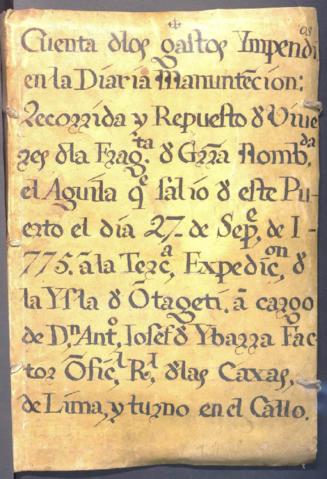 Cuenta dlos gastos Ympendos
en la Diaria Manuntecion:
Recorrida y Repuesto d Vive
res dla Fragta. d Grra Nombda
el Aguila qe salio d este Pu-
erto el dia 27 de Sepe, de 1-
775. â la Terca, Expedicon, d
la Ysla d Ôtageti, â cargo
de Dn Anto, Iosef d Ybarra Fac-
tor Ôficl, Rl dlas Caxas,
de Lima, y turno en el Callo.